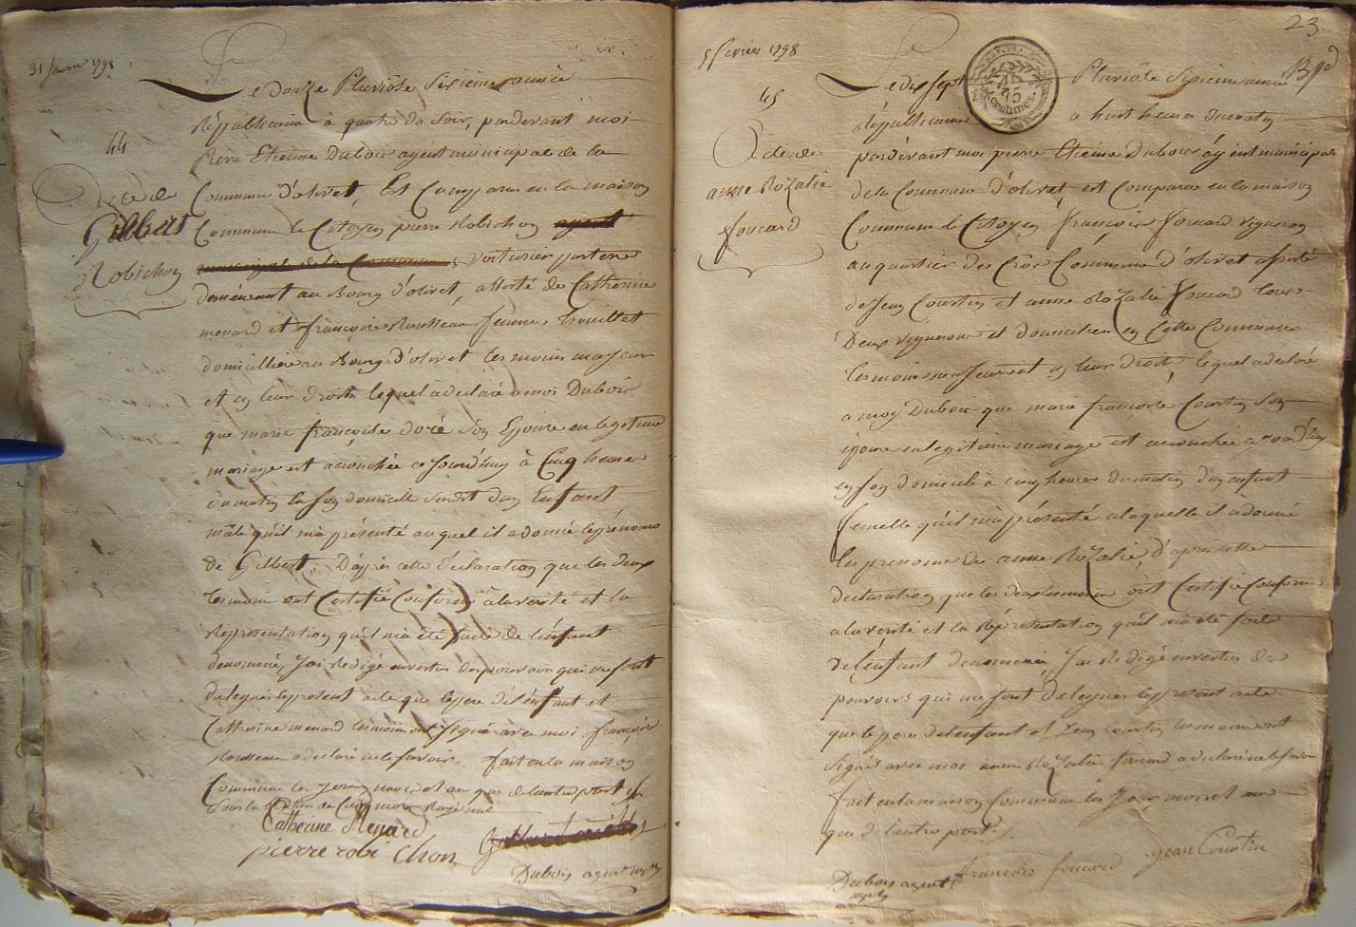 31 janvier 1798
44
Acte de
Gilbert
Robichon
Le douze Pluviôse Sixieme année
Républicaine à quatre du Soir, pardevant moi
Pierre Etienne Dubois agent municipal de la
Commune d'olivet, Est Comparu en la maison
Commune le Citoyen pierre Robichon agent
municipal de la Commune voiturier par terre
demeurant au Bourg d'olivet, assisté de Catherine
menard et françoise Rousseau femme Trouillet
domiciliée au Bourg d'olivet les moins majeur
et en leur droits lequel a déclaré a moi Dubois
que marie françoise doré Son Epouse en legitime
mariage est acouchée ce jourd'huy à Cinq heure
du matin en Son domicille Susdit d'un Enfant
mâle qu'il m'a présenté auquel il a donné le prénoms
de Gilbert. D'après cette déclaration que les deux
temoins ont Certifié Conforme à la verité et la
représentation qu'il m'a été faite de l'enfant
denommé, J'ai Redigé envertu des pouvoirs qui me sont
delegués le present acte que le pere de l'enfant et
Catherine menard temoins ont Signé avec moi françoise
rousseau a declaré ne le savoir. fait en la maison
Commune les Jour mois et an que de l'autre part
Catherine Menard
pierre robichon
Dubois agent mpal
23
5 fevrier 1798
45
Acte de
anne Rozalie
foucard
Le dix sept Pluviôse Sixieme année
Républicaine a huit heures du matin
pardevant moi pierre Etienne Dubois agent municipal
de la Commune d'olivet est Comparu en la maison
Commune le Citoyen François Foucard vigneron
au quartier du Crôs Commune d'olivet assisté
de Jean Courtin et anne Rozalie Foucard tous
Deux vignerons et domiciliés en Cette Commune
les moins majeurs et en leur droits, lequel a declaré
a moy Dubois que marie françoise Courtin Son
epouse en legitime mariage est acouchée ce jourd'huy
en son domicile a cinq heures du matin d'un enfant
femelle qu'il m'a présenté a laquelle il a donné
les prenoms de anne Rozalie, d'après cette
declaration que les deux temoins ont Certifié Conforme
a la verité et la représentation qu'il m'a été faite
de l'enfant denommé, J'ai Redigé envertu des
pouvoirs qui me sont delegués le present acte
que le pere de l'enfant et Jean Courtin temoins ont
Signés avec moi anne Rozalie foucard a declaré ne le savoir
fait en la maison Commune les Jour mois et an
que d'autre part.
Dubois agent
mpal
francois foucard
jean Courtin